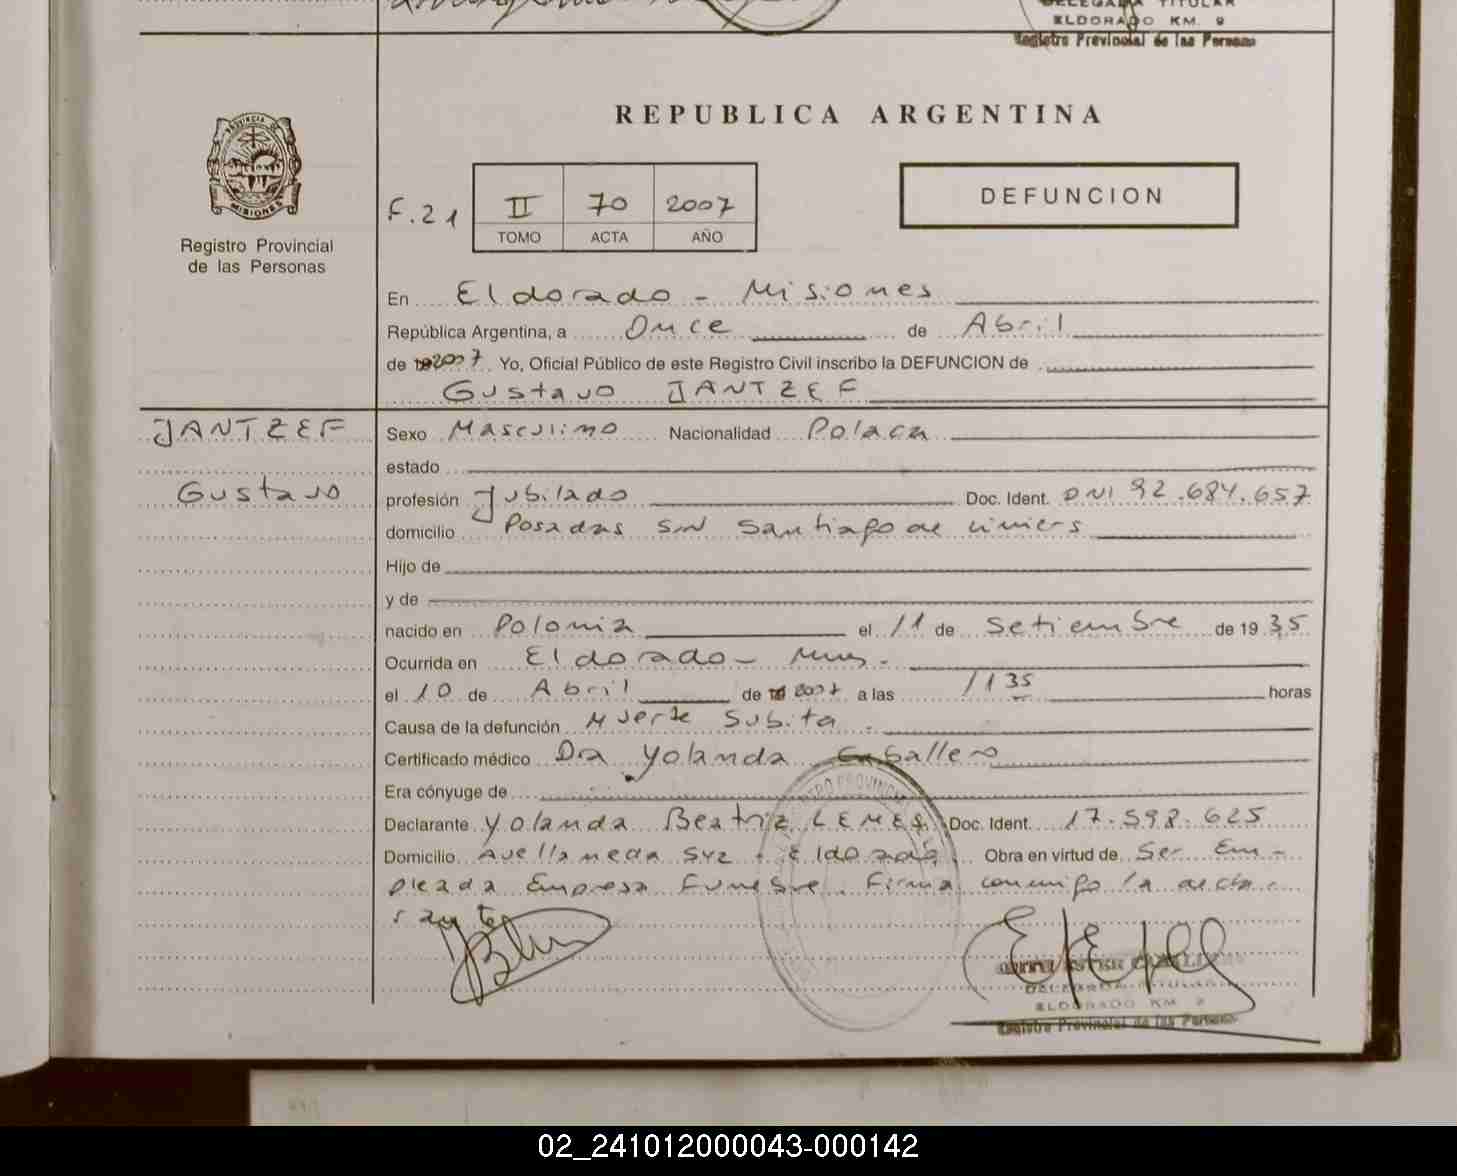 DELEGADA TITULAR
ELDORADO KM. 9
Registro Provincial de las Personas
REPUBLICA ARGENTINA
PROVINCIA DE
MISIONES
Registro Provincial
de las Personas
F.21
II 70 2007
TOMO ACTA AÑO
DEFUNCION
En Eldorado - Misiones
República Argentina, a Once de Abril
de 2007 Yo, Oficial Público de este Registro Civil inscribo la DEFUNCION de
Gustavo JANTZEF
JANTZEF
Gustavo
Sexo Masculino Nacionalidad Polaca
estado
profesión Jubilado Doc. Ident. DNI 92.684.657
domicilio Posadas S/N Santiago de Liniers
Hijo de
y de
nacido en Polonia el 11 de Setiembre de 1935
Ocurrida en Eldorado - Mnes.
el 10 de Abril de 2007 a las 11 35 horas
Causa de la defunción Muerte Subita.
Certificado médico Dra Yolanda Caballero
Era cónyuge de
Declarante Yolanda Beatriz LEMES Doc. Ident. 17.598.625
Domicilio Avellaneda 542. Eldorado. Obra en virtud de Ser Em-
pleada Empresa Funebre. Firma conmigo la decla-
rante
DELEGADA TITULAR
ELDORADO KM. 9
Registro Provincial de las Personas
02_241012000043-000142